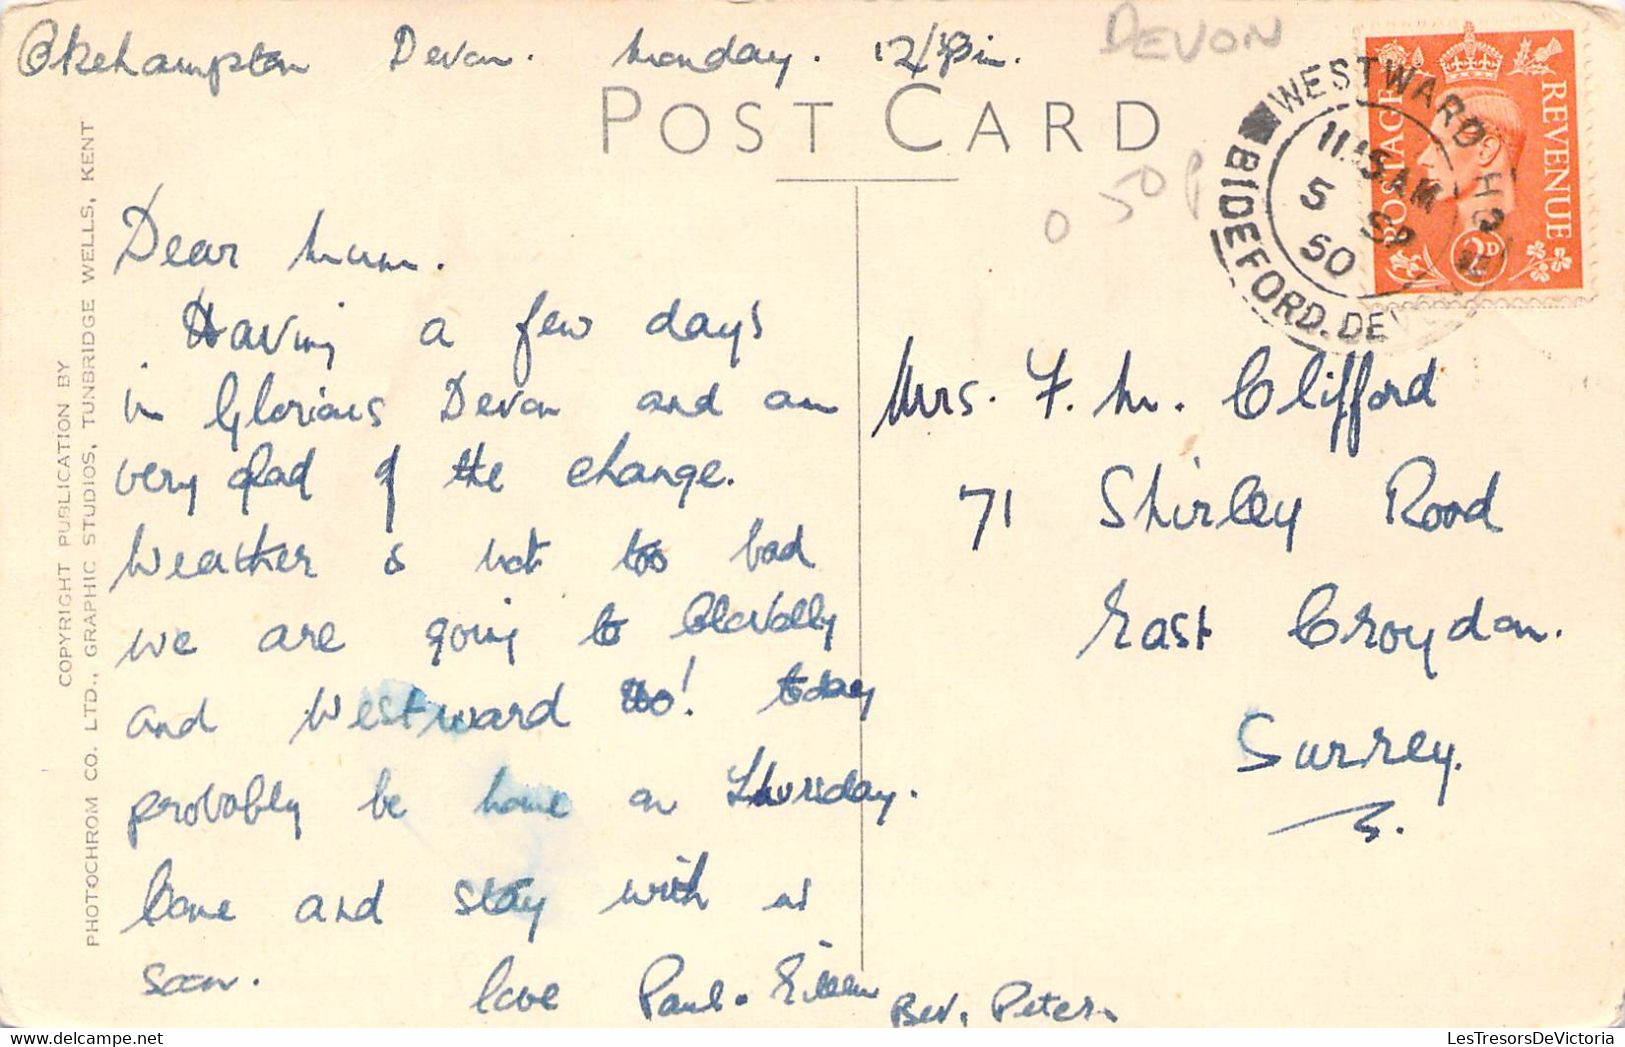 Okehampton Devon. Monday. 12/
DEVON
POST CARD
0 50p
WESTWARD HO
11.15AM
5 SP
50
BIDEFORD. DEVON
POSTAGE REVENUE
2D
Dear Mum.
Having a few days
in Glorious Devon and am
very glad of the change.
Weather is not too bad
we are going to Clovelly
and Westward Ho! today
probably be home on Thursday.
Come and stay with us
soon.
love Paul. Eileen Bev, Peter.
Mrs. F. M. Clifford
71 Shirley Road
East Croydon.
Surrey.
COPYRIGHT PUBLICATION BY
PHOTOCHROM CO. LTD., GRAPHIC STUDIOS, TUNBRIDGE WELLS, KENT
LesTresorsDeVictoria